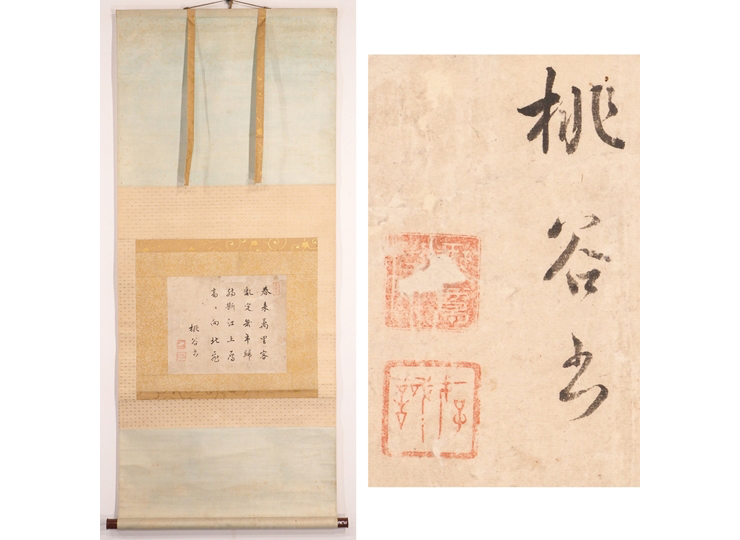 春来萬里客
亂定幾年歸
腸斷江上雁
高〻向北飛
桃谷書
桃谷書